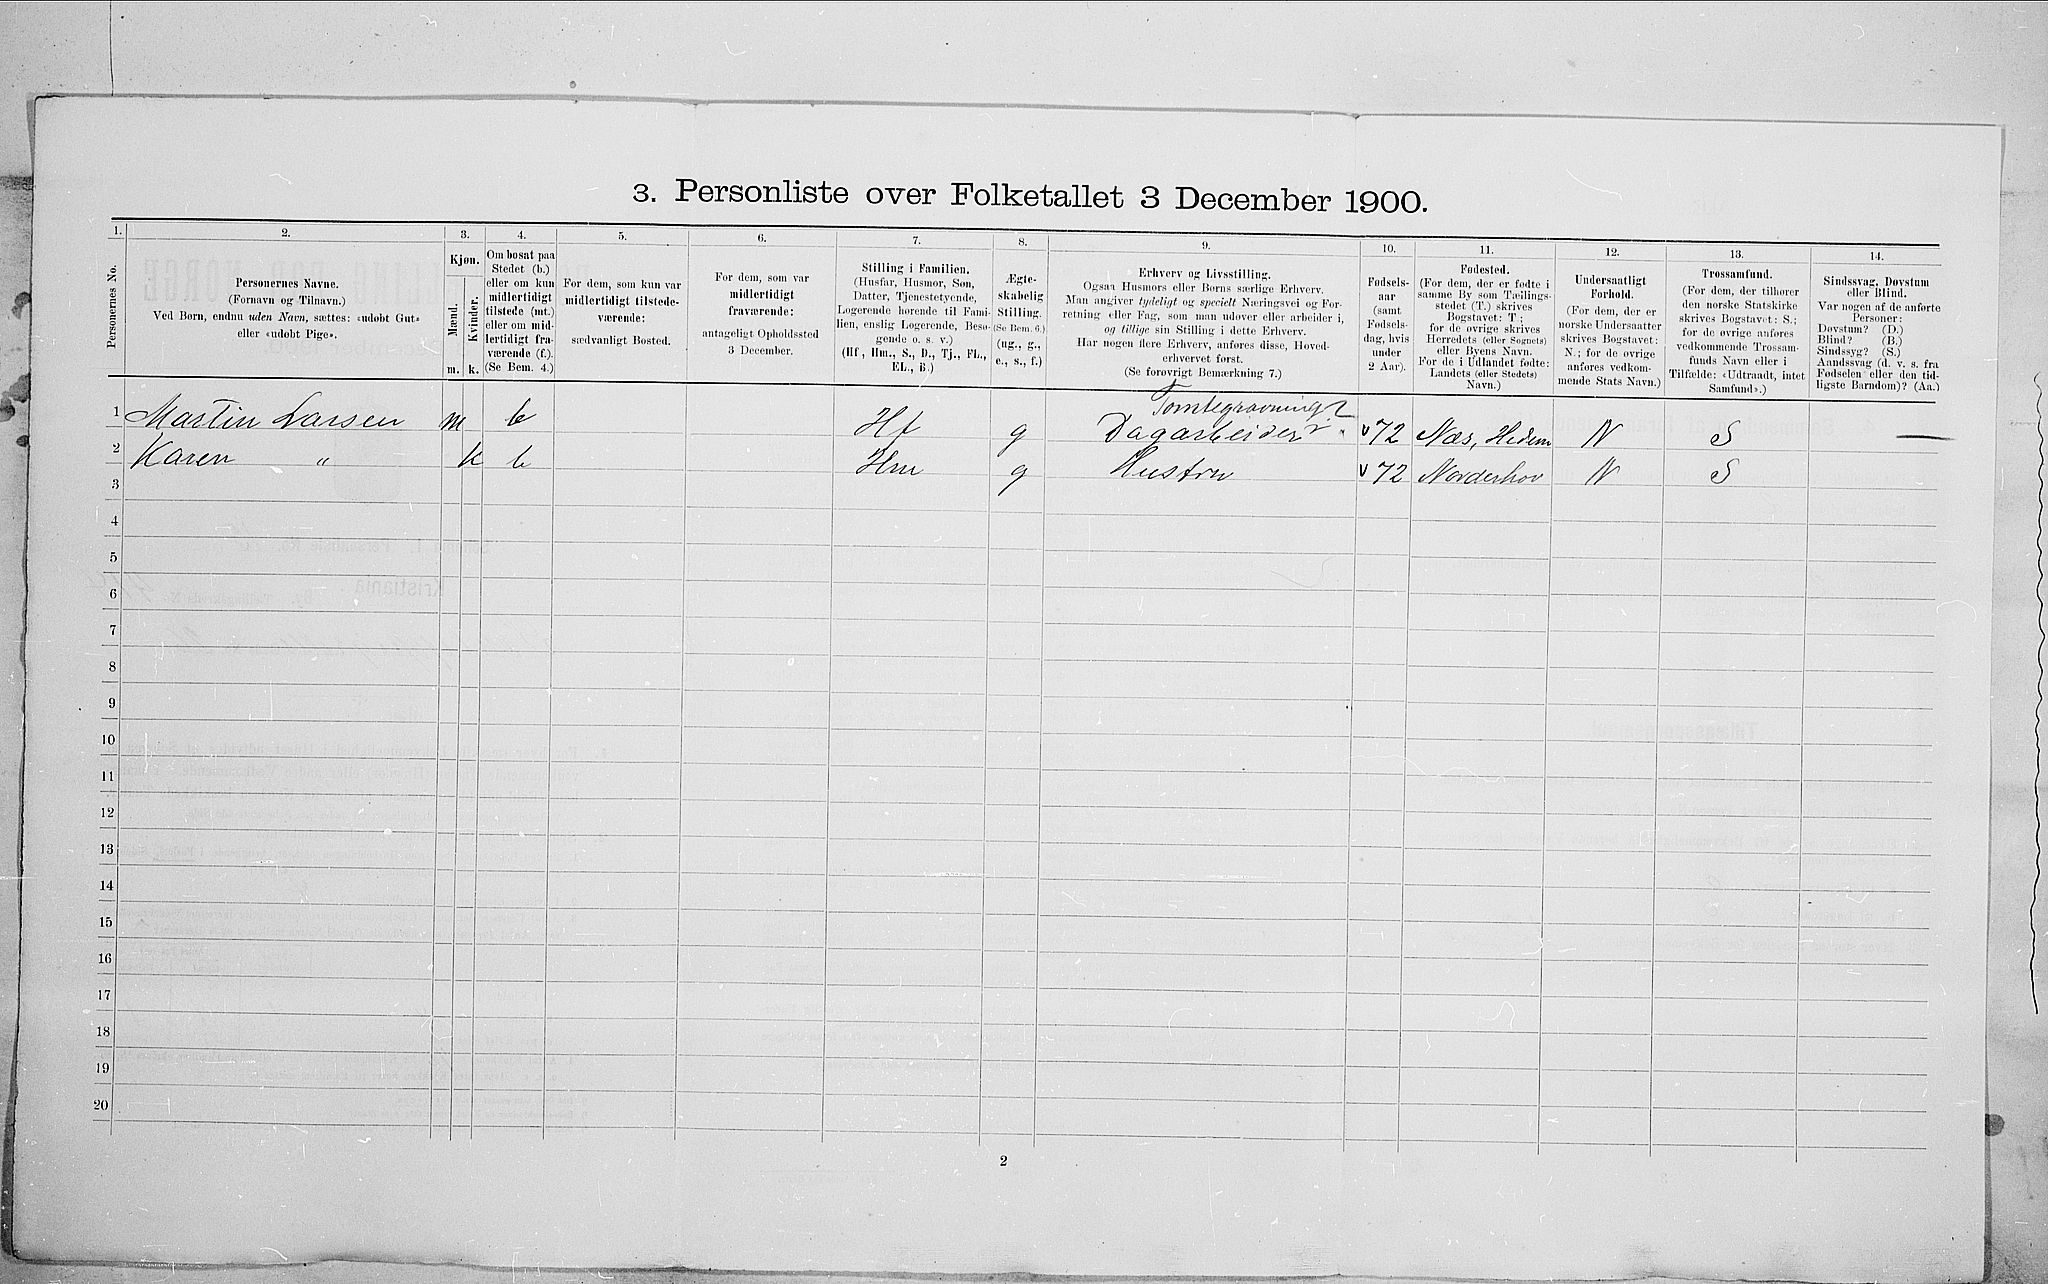 3. Personliste over Folketallet 3 December 1900.
1. 2. 3. 4. 5. 6. 7. 8. 9. 10. 11. 12. 13. 14.
Personernes No.
Personernes Navne.
(Fornavn og Tilnavn.)
Ved Børn, endnu uden Navn, sættes: «udøbt Gut»
eller «udøbt Pige».
Kjøn.
Mænd.
Kvinder.
m. k.
Om bosat paa
Stedet (b.)
eller om kun
midlertidigt
tilstede (mt.)
eller om mid-
lertidigt fra-
værende (f.).
(Se Bem. 4.)
For dem, som kun var
midlertidigt tilstede-
værende:
sædvanligt Bosted.
For dem, som var
midlertidigt
fraværende:
antageligt Opholdssted
3 December.
Stilling i Familien.
(Husfar, Husmor, Søn,
Datter, Tjenestetyende,
Logerende hørende til Fami-
lien, enslig Logerende, Besø-
gende o. s. v.)
(Hf., Hm., S., D., Tj., FL.,
EL., B.)
Ægte-
skabelig
Stilling.
(Se Bem. 6.)
(ug., g.,
e., s., f.)
Erhverv og Livsstilling.
Ogsaa Husmors eller Børns særlige Erhverv.
Man angiver tydeligt og specielt Næringsvei og For-
retning eller Fag, som man udover eller arbeider i,
og tillige sin Stilling i dette Erhverv.
Har nogen flere Erhverv, anføres disse, Hoved-
erhvervet først.
(Se forøvrigt Bemærkning 7.)
Fødsels-
aar
(samt
Fødsels-
dag, hvis
under
2 Aar).
Fødested.
(For dem, der er fødte i
samme By som Tællings-
stedet (T.) skrives
Bogstavet: T.;
for de øvrige skrives
Herredets (eller Sognets)
eller Byens Navn.
For de i Udlandet fødte:
Landets (eller Stedets)
Navn.)
Undersaatligt
Forhold.
(For dem, der er
norske Undersaatter
skrives Bogstavet:
N.; for de øvrige
anføres vedkom-
mende Stats Navn.)
Trossamfund.
(For dem, der tilhører
den norske Statskirke
skrives Bogstavet: S.;
for de øvrige anføres
vedkommende Trossam-
funds Navn eller i
Tilfælde: «Udtraadt, intet
Samfund».)
Sindssvag, Døvstum
eller Blind.
Var nogen af de anførte
Personer:
Døvstum? (D.)
Blind? (B.)
Sindssyg? (S.)
Aandssvag (d. v. s. fra
Fødselen eller den tid-
ligste Barndom)? (Aa.)
Tomtegravning
1 Martin Larsen m b Hf g Dagarbeider v 72 Næs, Hedem N S —
2 Karen " k b Hm g Hustru v 72 Norderhov N S
3
4
5
6
7
8
9
10
11
12
13
14
15
16
17
18
19
20
2